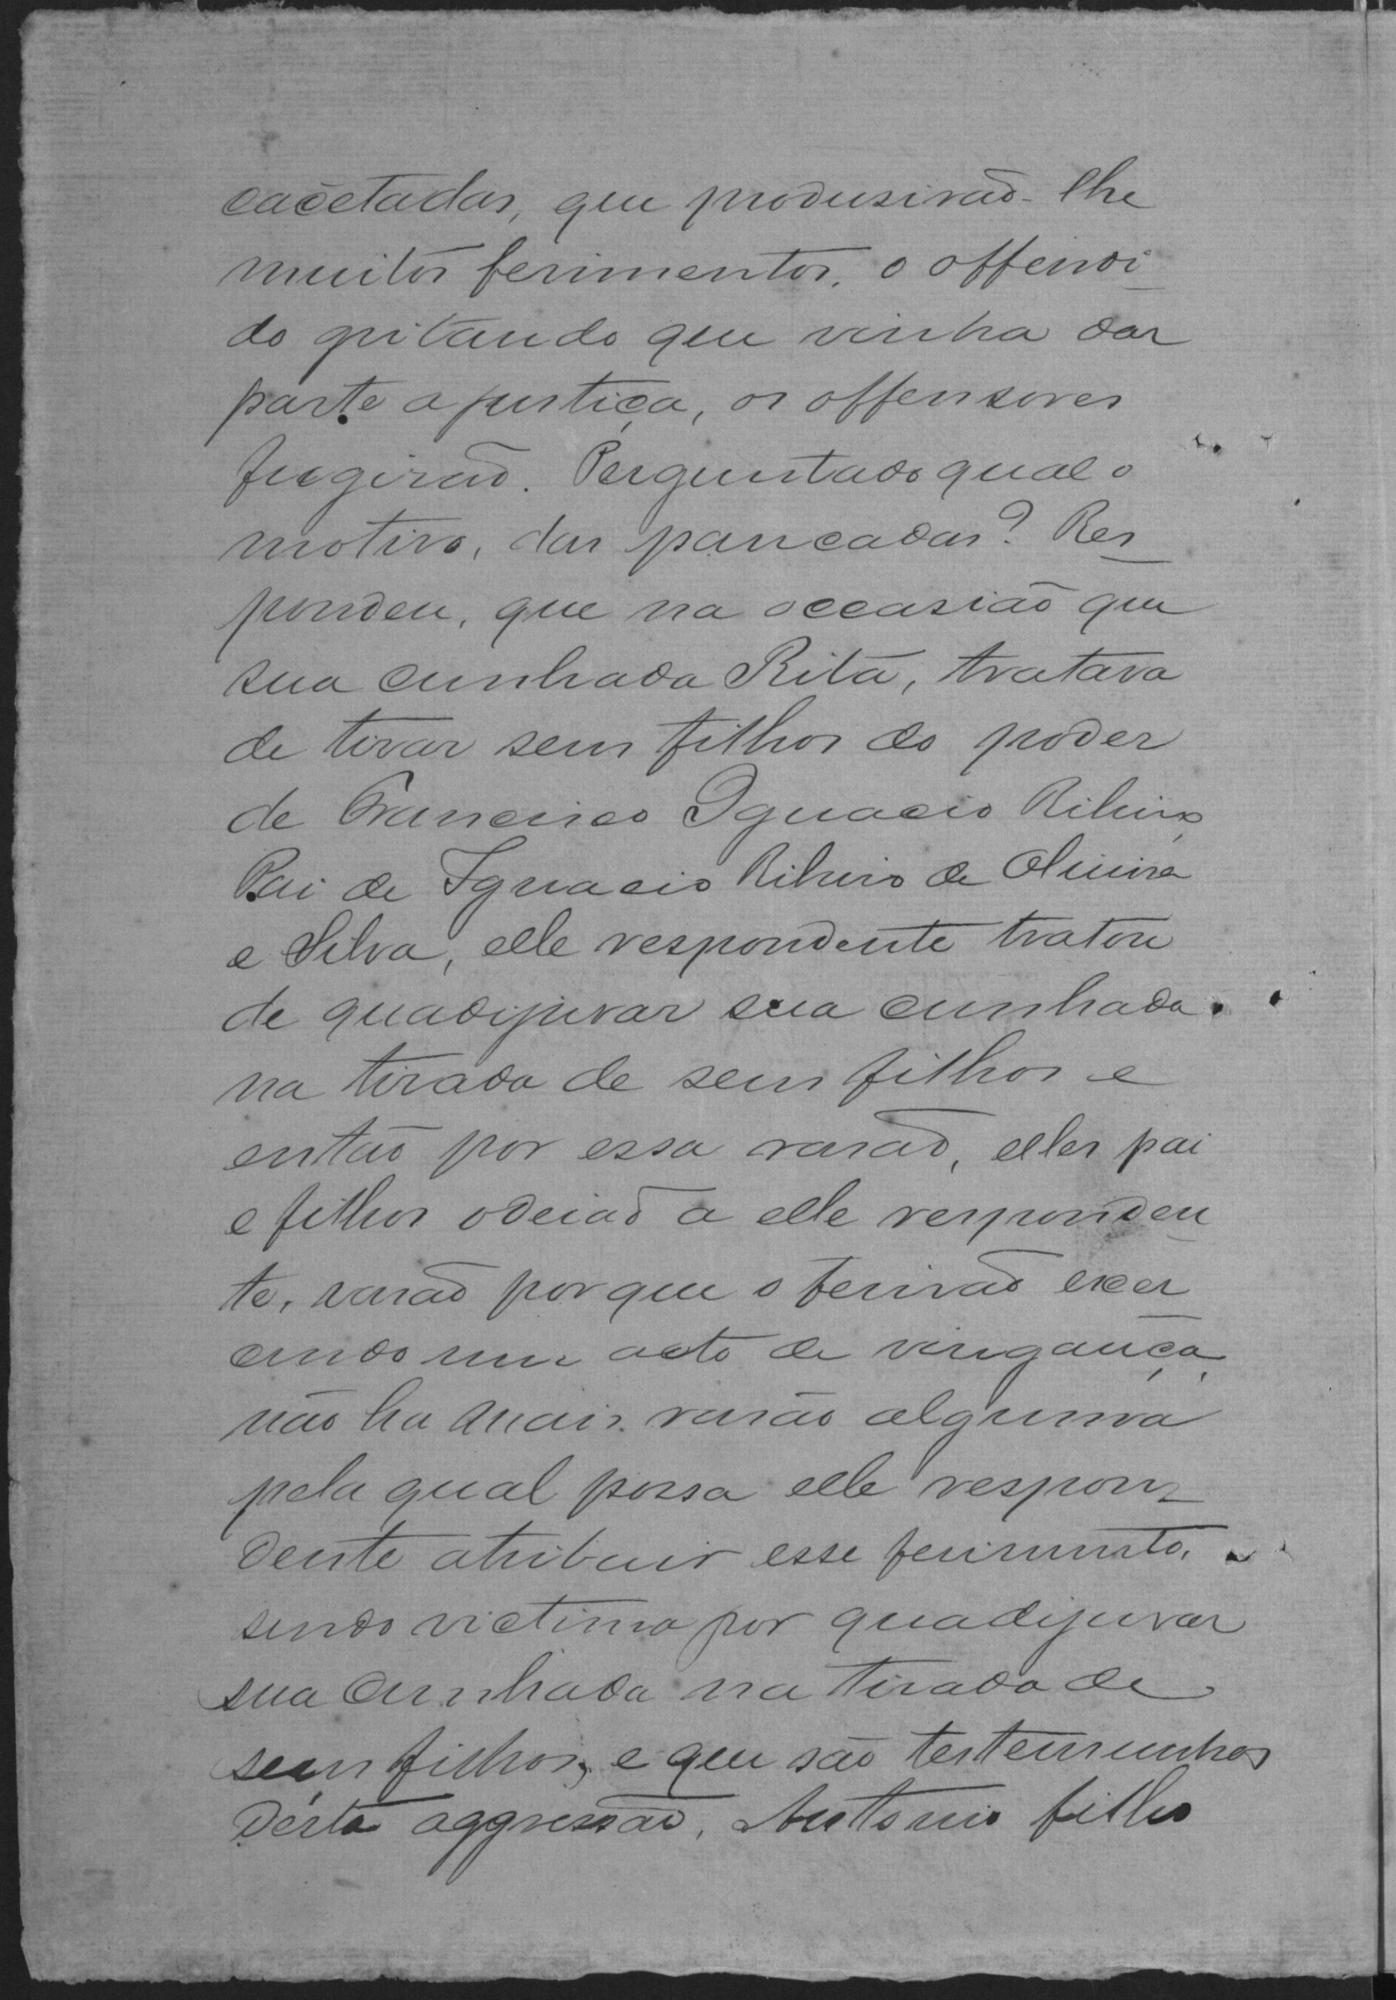 cacetadas, que produsirão-lhe
muitos ferimentos, o offendi
do gritando que vinha dar
parte a justiça, os offensores
fugirão. Perguntado qual o
motivo, das pancadas? Res
pondeu, que na occasião que
sua cunhada Rita, tratava
de tirar seus filhos do poder
de Francisco Ignacio Ribeiro
Pai de Ignacio Ribeiro de Oliveira
e Silva, elle respondente tratou
de quadijuvar sua cunhada
na tirada de seus filhos e
então por essa rasão, elles pai
e filhos odeião a elle responden
te, rasão por que o ferirão exer
cendo um acto de vingança,
não ha mais rasão alguma
pela qual possa elle respon-
dente atribuir esse ferimento,
sendo victima por quadijuvar
sua cunhada na tirada de
seus filhos, e que são testemunhas
desta aggressão, Antonio filho